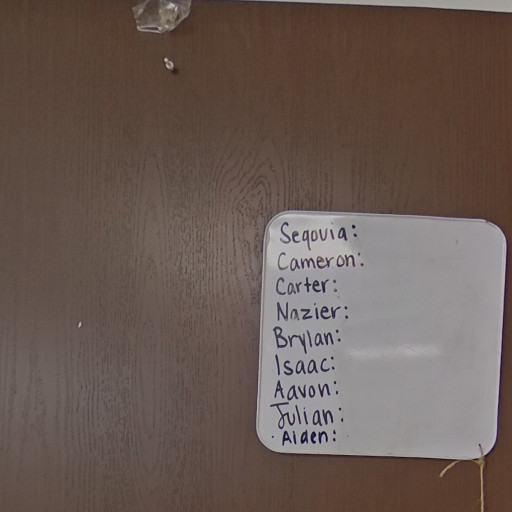 Segovia:
Cameron:
Carter:
Nazier:
Brylan:
Isaac:
Aavon:
Julian:
Aiden: